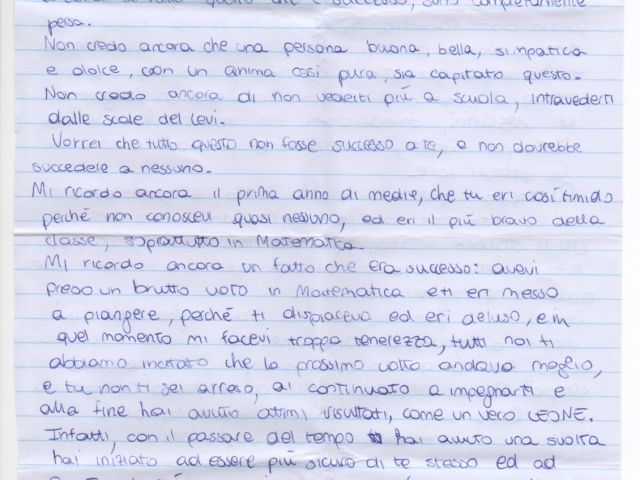 quello che è successo, sono completamente
persa.
Non credo ancora che una persona buona, bella, simpatica
e dolce, con un anima così pura, sia capitato questo.
Non credo ancora di non vederti più a scuola, intravederti
dalle scale del Levi.
Vorrei che tutto questo non fosse successo a te, e non dovrebbe
succedere a nessuno.
Mi ricordo ancora il prima anno di medie, che tu eri così timido
perché non conoscevi quasi nessuno, ed eri il più bravo della
classe, soprattutto in Matematica.
Mi ricordo ancora un fatto che era successo: avevi
preso un brutto voto in Matematica e ti eri messo
a piangere, perché ti dispiaceva ed eri deluso, e in
quel momento mi facevi troppa tenerezza, tutti noi ti
abbiamo incitato che la prossimo volta andava meglio,
e tu non ti sei arreso, ai continuato a impegnarti e
alla fine hai avuto ottimi risultati, come un vero LEONE.
Infatti, con il passare del tempo hai avuto una svolta
hai iniziato ad essere più sicuro di te stesso ed ad